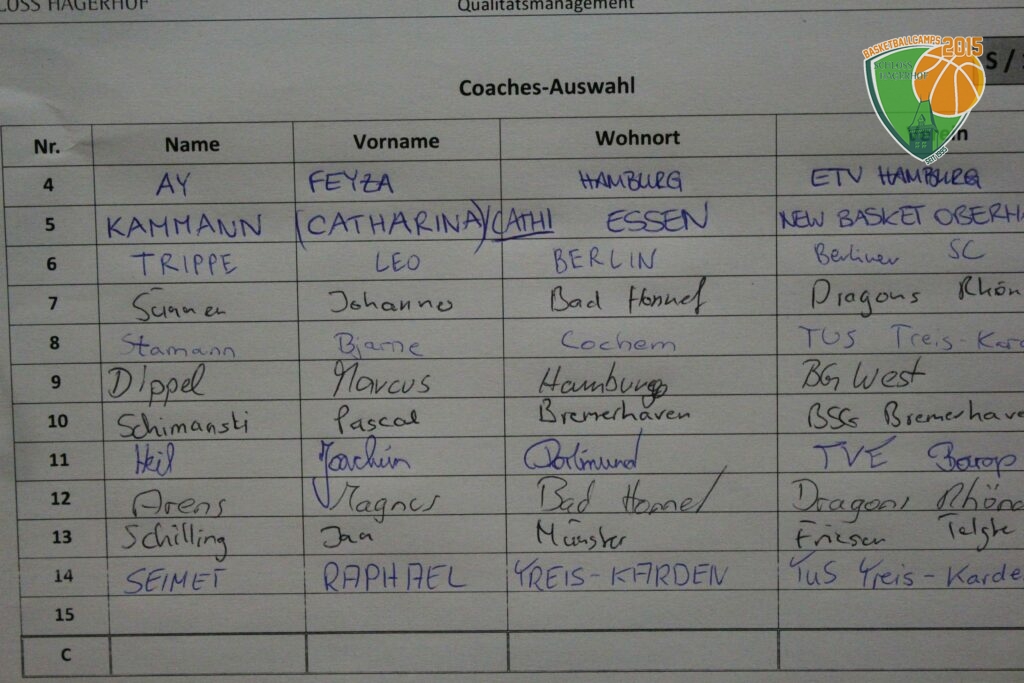 LOSS HAGERHOF Qualitätsmanagement
BASKETBALLCAMPS 2015
SCHLOSS HAGERHOF
SEIT 1995
S /
Coaches-Auswahl
Nr. Name Vorname Wohnort
4 AY FEYZA HAMBURG ETV HAMBURG
5 KAMMANN (CATHARINA) CATHI ESSEN NEW BASKET OBERHA
6 TRIPPE LEO BERLIN Berliner SC
7 Johanno Bad Honnef Dragons Rhön
8 Stamann Bjarne Cochem TUS Treis-Kard
9 Dippel Marcus Hamburg BG West
10 Schimanski Pascal Bremerhaven BSG Bremerhave
11 Heil Joachim Dortmund TVE Barop
12 Arens Magnus Bad Honnef Dragons Rhönd
13 Schilling Jan Münster Friesen Telgte
14 SEIMET RAPHAEL TREIS-KARDEN TuS Treis-Karde
15
C